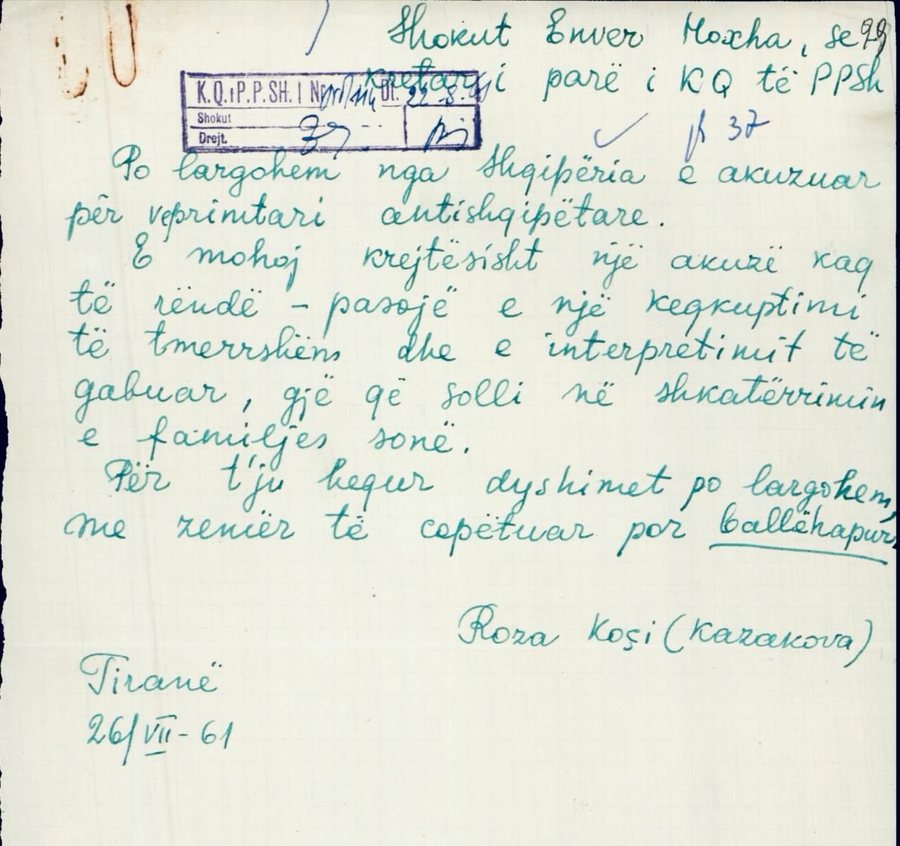 Shokut Enver Hoxha, se
29
kretar i parë i KQ të PPSh
K.Q. i P.P.SH. | Nr. Dt. 22-8-61
Shokut
Drejt.
37
Po largohem nga Shqipëria e akuzuar
për veprimtari antishqipëtare.
E mohoj krejtësisht një akuzë kaq
të rëndë – pasojë e një keqkuptimi
të tmerrshëm dhe e interpretimit të
gabuar, gjë që solli në shkatërrimin
e familjes sonë.
Për t'ju hequr dyshimet po largohem,
me zemër të copëtuar por ballëhapur.
Roza Koçi (Kazakova)
Tiranë
26/VII-61